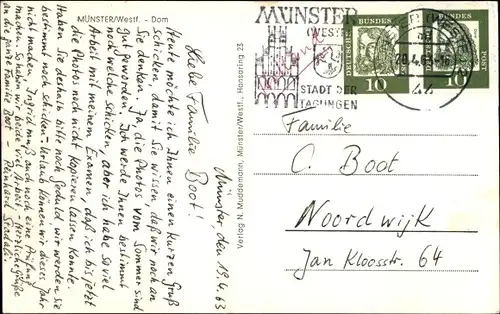 MÜNSTER/Westf. - Dom
Münster, den 19.4.63
Liebe Familie Boot!
Heute möchte ich Ihnen einen kurzen Gruß
schicken, damit Sie wissen, daß wir noch an
Sie denken. Ja, die Photos vom Sommer sind
gut geworden. Ich werde Ihnen bestimmt
noch welche schicken, aber ich habe so viel
Arbeit mit meinem Examen, daß ich bis jetzt
die Photos noch nicht kopieren lassen konnte.
Haben Sie deshalb bitte noch Geduld wir werden sie
bestimmt noch schicken - Urlaub können wir dieses Jahr
nicht machen. Ingrid muß auch noch eine Prüfung
machen. So haben wir beide viel Arbeit. Herzliche Grüße
an die ganze Familie Boot - Reinhard
Verlag N. Muddemann, Münster/Westf., Hansaring 25
MÜNSTER
(WESTF)
STADT DER
TAGUNGEN
20.4.63-16
44
DEUTSCHE BUNDESPOST
10
DEUTSCHE BUNDESPOST
10
Familie
C. Boot
Noordwijk
Jan Kloosstr. 64